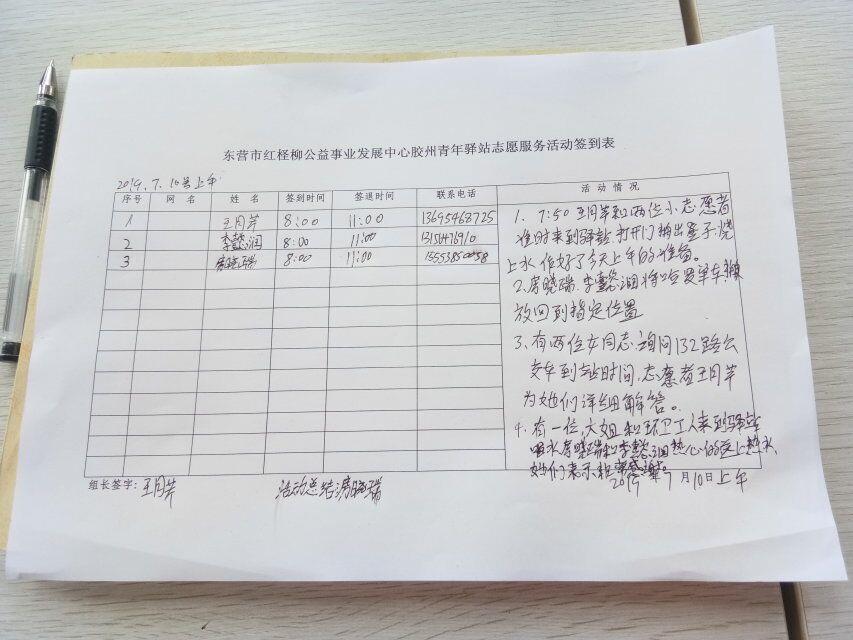 东营市红柽柳公益事业发展中心胶州青年驿站志愿服务活动签到表
2019.7.10号上午
序号 网 名 姓 名 签到时间 签退时间 联系电话 活 动 情 况
1 王月芹 8:00 11:00 13695468725
2 李懿润 8:00 11:00
3 房晓瑞 8:00 11:00
1. 7:50 王月芹和两位小志愿者
准时来到驿站.打开门搬出桌子.烧
上水.作好了今天上午的准备。
2.房晓瑞.李懿润将哈罗单车
放回到指定位置
3、有两位女同志询问132路公
交车到站时间,志愿者王月芹
为她们详细解答。
4.有一位大姐和环卫工人来到驿站
喝水房晓瑞和李懿润热心的送上热水
她们表示
2019年7月10日上午
组长签字:王月芹 活动总结:房晓瑞